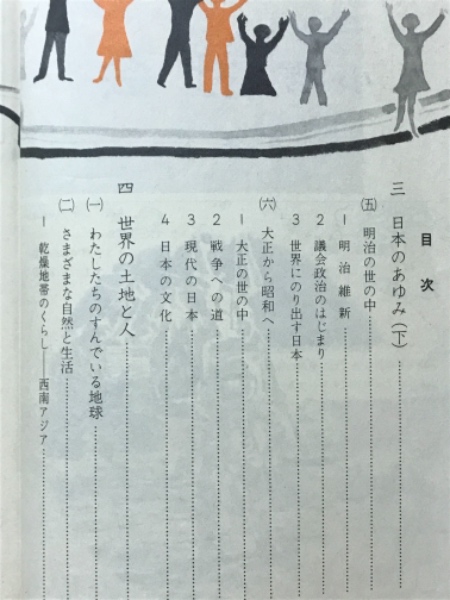 目次
三 日本のあゆみ(下)
(五) 明治の世の中
1 明治維新
2 議会政治のはじまり
3 世界にのり出す日本
(六) 大正から昭和へ
1 大正の世の中
2 戦争への道
3 現代の日本
4 日本の文化
四 世界の土地と人
(一) わたしたちのすんでいる地球
(二) さまざまな自然と生活
1 乾燥地帯のくらし——西南アジア